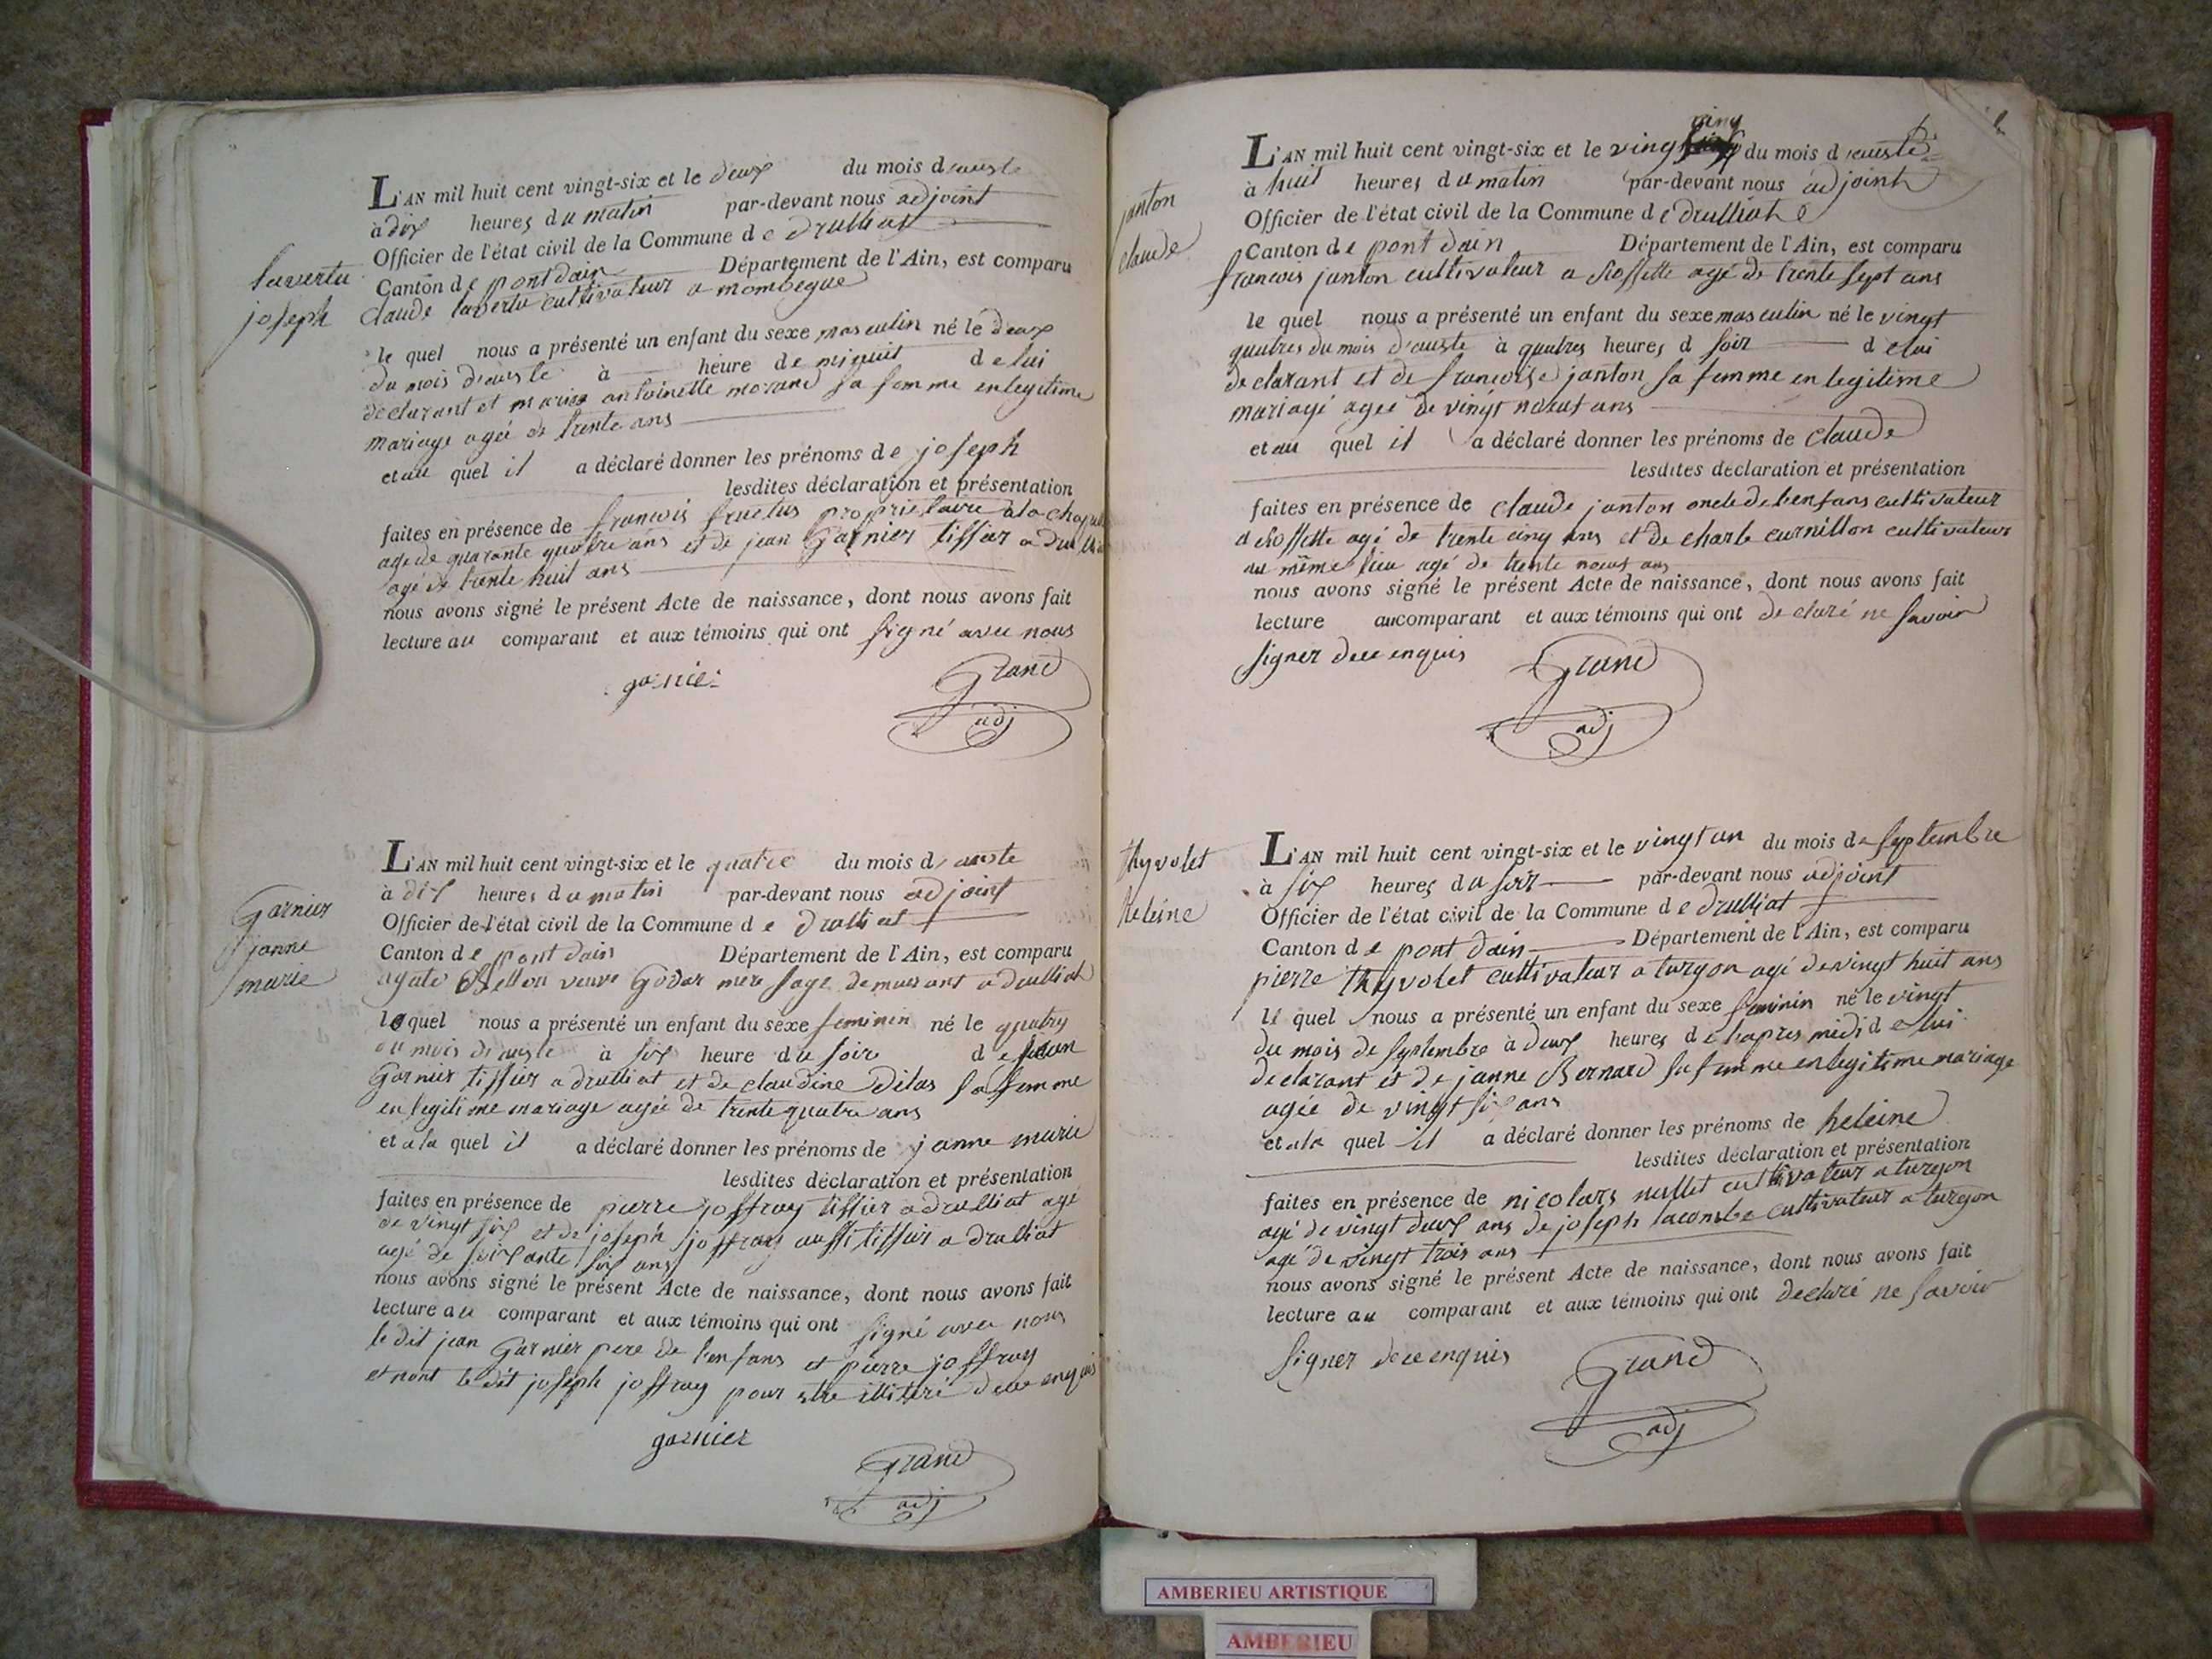 L'AN mil huit cent vingt-six et le deux du mois d'auste
à dix heures du matin par-devant nous adjoint
Officier de l'état civil de la Commune de drulliat
Canton de pont dain Département de l'Ain, est comparu
lavertu
joseph
Claude lavertu cultivateur a mombegue
le quel nous a présenté un enfant du sexe masculin né le deux
du mois d'auste à heure de minuit de lui
declarant et marie antoinette morand sa femme en legitime
mariage agée de trente ans
et au quel il a déclaré donner les prénoms de joseph
lesdites déclaration et présentation
faites en présence de francois fructus proprietaire a la
age de quarante quatre ans et de jean Garnier tissier a
agé de trente huit ans
nous avons signé le présent Acte de naissance, dont nous avons fait
lecture au comparant et aux témoins qui ont signé avec nous
garnier Grand
adj
L'AN mil huit cent vingt-six et le quatre du mois d'auste
à dix heures du matin par-devant nous adjoint
Officier de l'état civil de la Commune de drulliat
Garnier
janne
marie
Canton de pont dain Département de l'Ain, est comparu
agate veuve Godar mere sage demeurant a drulliat
lequel nous a présenté un enfant du sexe feminin né le quatre
du mois d'auste à six heure du soir de jean
Garnier tissier a drulliat et de claudine Dilas sa femme
en legitime mariage agée de trente quatre ans
et a la quel il a déclaré donner les prénoms de janne marie
lesdites déclaration et présentation
faites en présence de pierre joffray tissier a drulliat agé
de vingt six et de joseph joffray aussi tissier a drulliat
agé de soixante six ans
nous avons signé le présent Acte de naissance, dont nous avons fait
lecture au comparant et aux témoins qui ont signé avec nous
le dit jean Garnier pere de l'enfans et pierre joffray
et nont le dit joseph joffray pour etre illitéré de ce enquis
garnier
Grand
adj
L'AN mil huit cent vingt-six et le vingt cinq du mois d'auste
à huit heures du matin par-devant nous adjoint
janton
claude
Officier de l'état civil de la Commune de drulliat
Canton de pont dain Département de l'Ain, est comparu
francois janton cultivateur a agé de trente sept ans
le quel nous a présenté un enfant du sexe masculin né le vingt
quatres du mois d'auste à quatres heures d soir d elui
declarant et de francoise janton sa femme en legitime
mariagé agee de vingt noeuf ans
et au quel il a déclaré donner les prénoms de claude
lesdites déclaration et présentation
faites en présence de claude janton oncle de l'enfans cultivateur
a agé de trente cinq ans et de charle curnillon cultivateur
au même lieu agé de trente noeuf ans
nous avons signé le présent Acte de naissance, dont nous avons fait
lecture au comparant et aux témoins qui ont declaré ne savoir
signer de ce enquis Grand
adj
L'AN mil huit cent vingt-six et le vingt un du mois de septembre
thyvolet
heleine
à six heures du soir par-devant nous adjoint
Officier de l'état civil de la Commune de drulliat
Canton de pont dain Département de l'Ain, est comparu
pierre thyvolet cultivateur a turgon agé de vingt huit ans
le quel nous a présenté un enfant du sexe feminin né le vingt
du mois de septembre à deux heures de l'apres midi d elui
declarant et de janne Bernard sa femme en legitime mariage
agée de vingt six ans
et a la quel il a déclaré donner les prénoms de heleine
lesdites déclaration et présentation
faites en présence de nicolars nullet cultivateur a turgon
agé de vingt deux ans de joseph lacombe cultivateur a turgon
agé de vingt trois ans
nous avons signé le présent Acte de naissance, dont nous avons fait
lecture au comparant et aux témoins qui ont declaré ne savoir
signer de ce enquis Grand
adj
AMBERIEU ARTISTIQUE
AMBERIEU